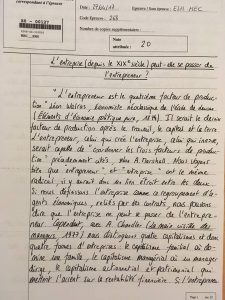 correspondant à l'épreuve
Date : 27/04/17
Epreuve / Sous-épreuve : ESH HEC
Code Epreuve : 268
Nombre de copies supplémentaires :
Note attribuée : 20
L'entreprise (depuis le XIXe siècle) peut-elle se passer de
l'entrepreneur ?
"L'entrepreneur est le quatrième facteur de produc-
tion" Léon Walras, économiste néoclassique de l'école de
(Eléments d'Economie politique pure, ). Il serait le dernier
facteur de production après le travail, le capital et la terre
L'entrepreneur, celui qui crée l'entreprise, celui qui innove,
serait capable de "coordonner les trois facteurs de produc-
tion" précédemment cités, A. Marshall. Nous voyons
bien que entrepreneur et "entreprise" ont le même
radical, il y aurait donc un lien étroit entre les deux.
Si nous définissons l'entreprise comme un regroupement d'a-
gents économiques, reliés par des contrats, nous pouvons
dire que l'entreprise ne peut se passer de l'entrepre-
neur. Cependant, avec A. Chandler (La main visible des
managers, 1977) nous distinguons quatre capitalismes et donc
quatre formes d'entreprises : le capitalisme familial où do-
mine une famille, le capitalisme managérial où un manager
dirige, le capitalisme actionnarial et patrimonial qui
mettent l'accent sur la rentabilité financière. Si l'entrepreneur